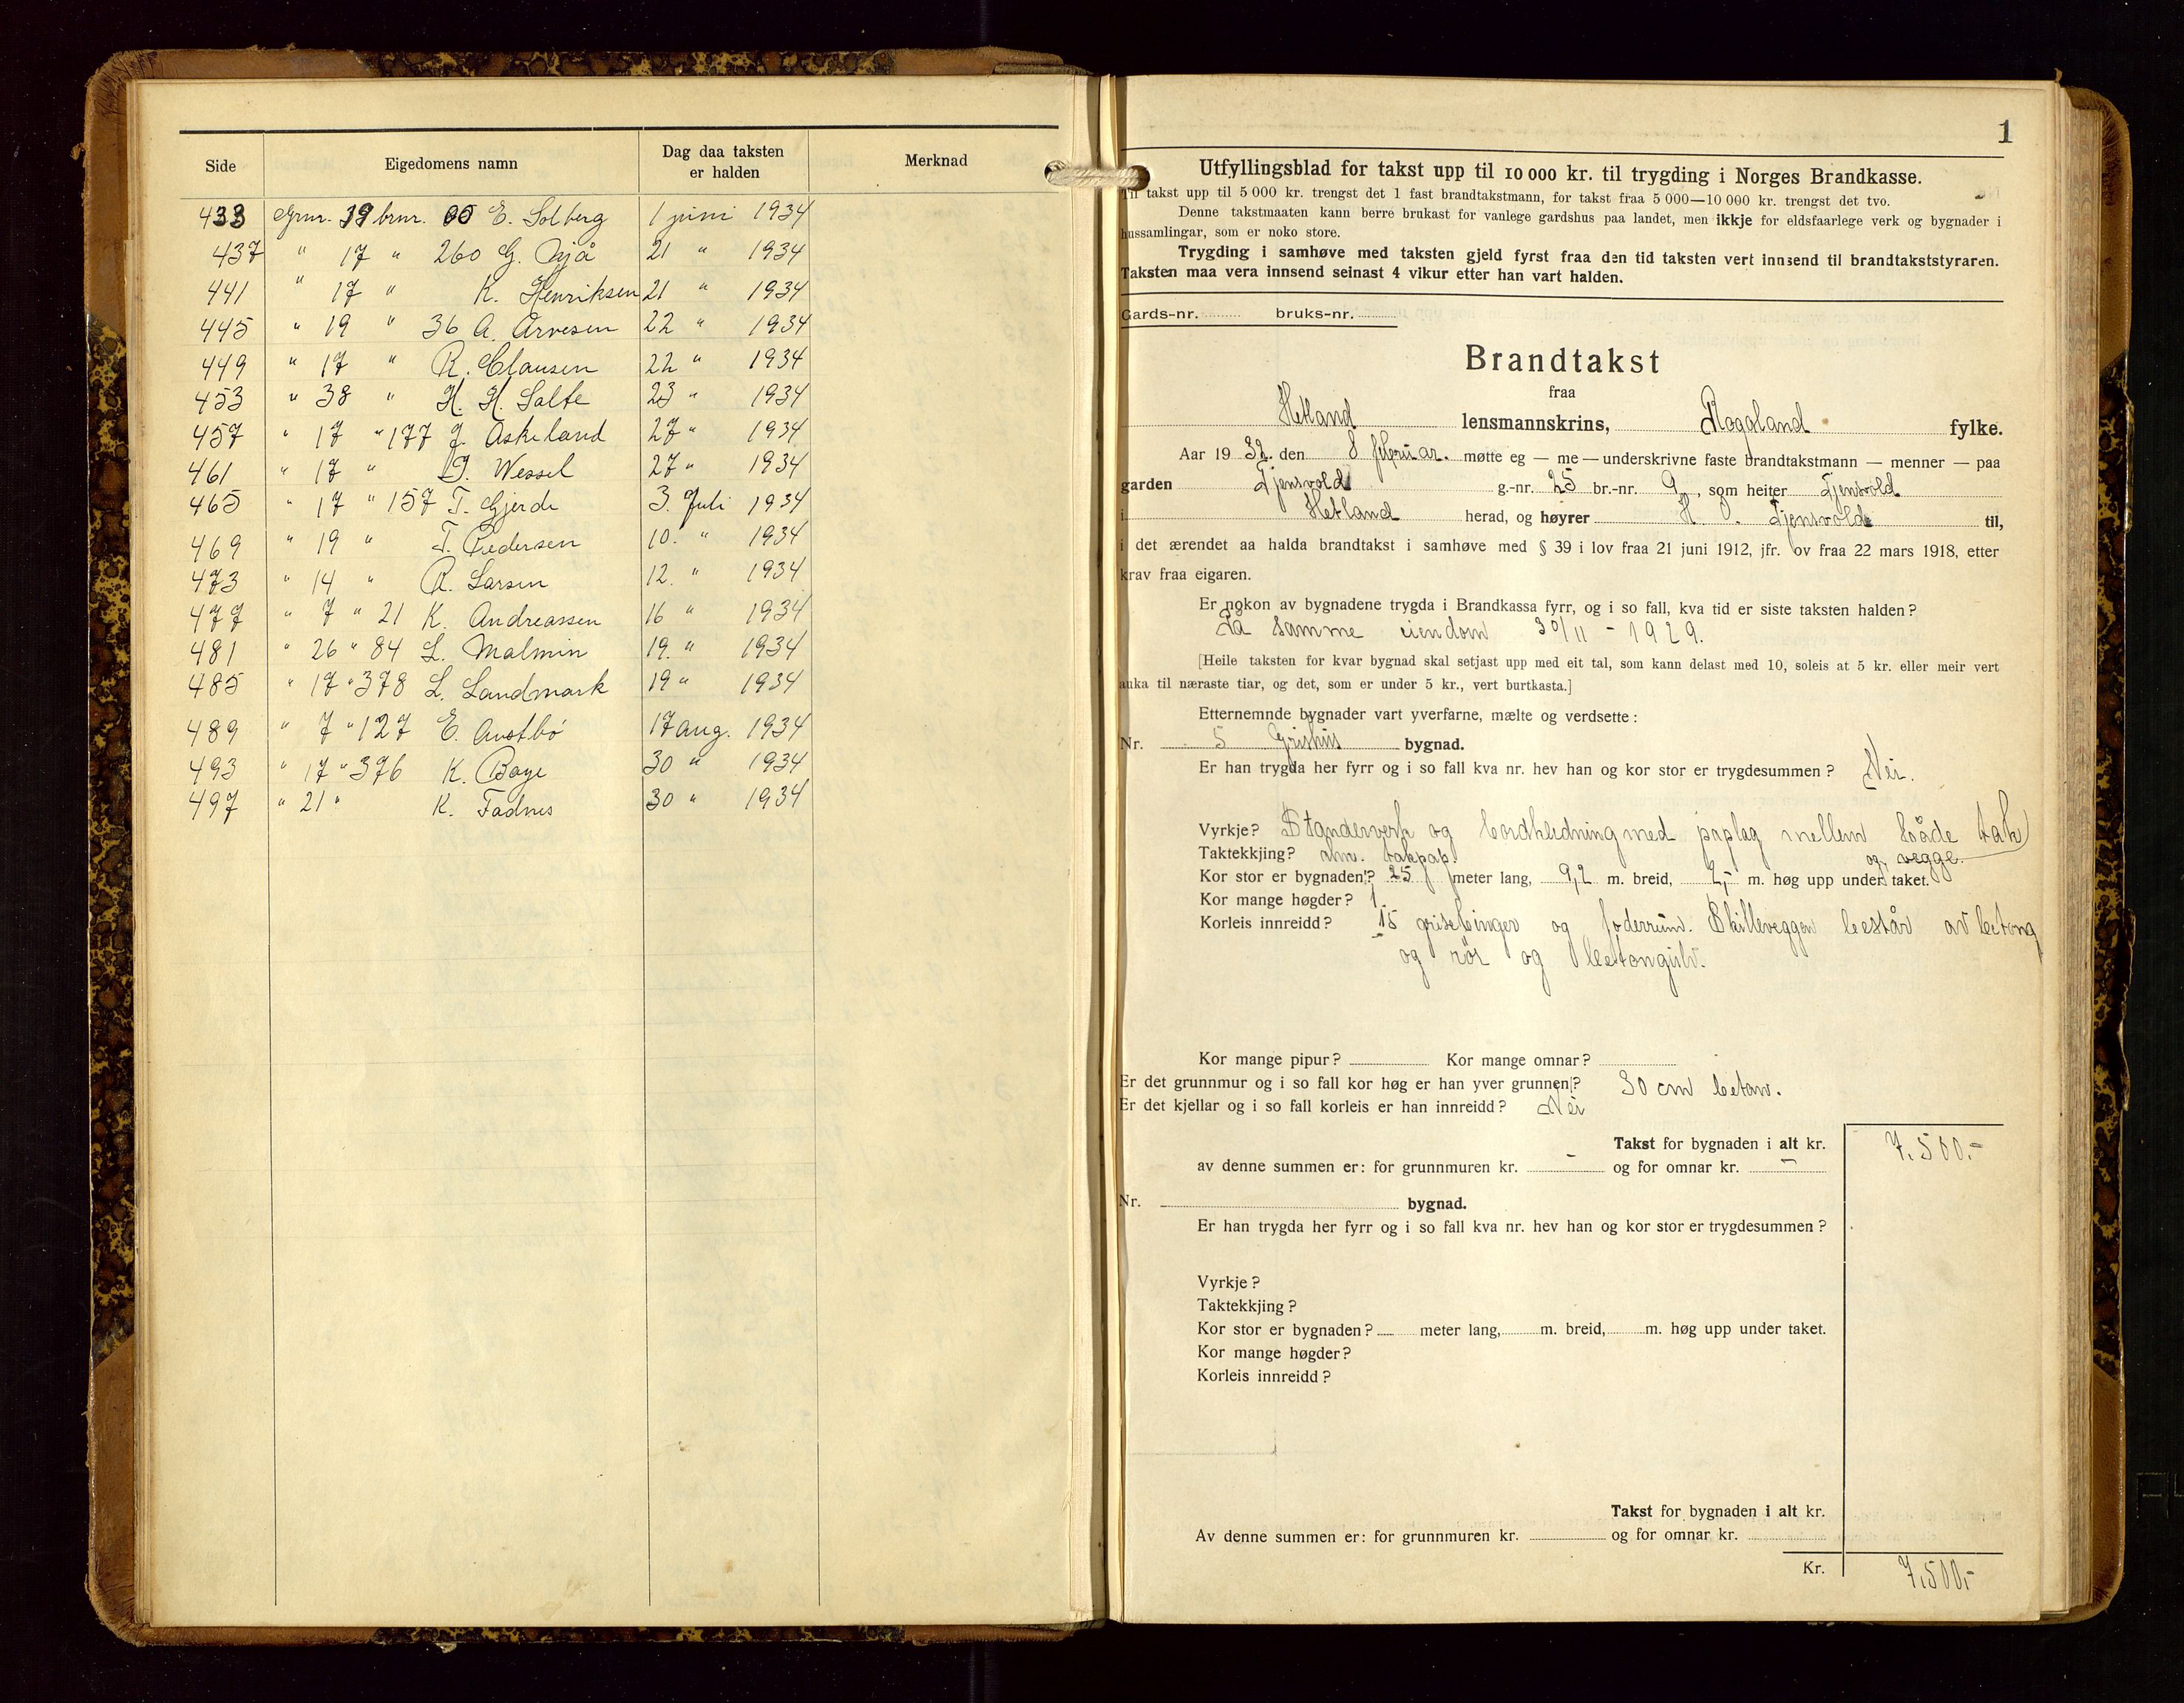 Side Eigedomens namn Dag daa taksten er halden Merknad
433 Grnr. 39 brnr. 65 E. Solberg 1 juni 1934
437 " 17 " 260 G. 21 " 1934
441 " 17 " K. Henriksen 21 " 1934
445 " 19 " 36 A. Arvesen 22 " 1934
449 " 17 " R. Clausen 22 " 1934
453 " 38 " H. H. Salte 23 " 1934
457 " 17 " 177 J. Askeland 27 " 1934
461 " 17 " J. Wessel 27 " 1934
465 " 17 " 157 T. Gjerde 3. Juli 1934
469 " 19 " T. Pedersen 10. " 1934
473 " 14 " R. Larsen 12. " 1934
477 " 7 " 21 K. Andreassen 16 " 1934
481 " 26 " 84 L. Malmin 19. " 1934
485 " 17 " 378 L. Landmark 19 " 1934
489 " 7 " 127 E. Austbø 17 aug. 1934
493 " 17 " 376 K. Boye 30 " 1934
497 " 21 " K. Fadnes 30 " 1934
1
Utfyllingsblad for takst upp til 10 000 kr. til trygding i Norges Brandkasse.
Til takst upp til 5 000 kr. trengst det 1 fast brandtakstmann, for takst fraa 5 000—10 000 kr. trengst det tvo.
Denne takstmaaten kann berre brukast for vanlege gardshus paa landet, men ikkje for eldsfaarlege verk og bygnader i
hussamlingar, som er noko store.
Trygding i samhøve med taksten gjeld fyrst fraa den tid taksten vert innsend til brandtakststyraren.
Taksten maa vera innsend seinast 4 vikur etter han vart halden.
Gards-nr. bruks-nr.
Brandtakst
fraa
Hetland lensmannskrins, Rogaland fylke.
Aar 1932 den 8 februar. møtte eg — me — underskrivne faste brandtakstmann — menner — paa
garden Tjensvold g.-nr. 25 br.-nr. 9, som heiter Tjensvold
i Hetland herad, og høyrer H. O. Tjensvold til,
i det ærendet aa halda brandtakst i samhøve med § 39 i lov fraa 21 juni 1912, jfr. ov fraa 22 mars 1918, etter
krav fraa eigaren.
Er nokon av bygnadene trygda i Brandkassa fyrr, og i so fall, kva tid er siste taksten halden?
På samme eiendom 30/11 - 1929.
[Heile taksten for kvar bygnad skal setjast upp med eit tal, som kann delast med 10, soleis at 5 kr. eller meir vert
auka til næraste tiar, og det, som er under 5 kr., vert burtkasta.]
Etternemnde bygnader vart yverfarne, mælte og verdsette:
Nr. 5 Grishus bygnad.
Er han trygda her fyrr og i so fall kva nr. hev han og kor stor er trygdesummen? Nei.
Vyrkje? Standerverk og bordkledning med paplag mellem både tak
og vegge.
Taktekkjing? alm. takpap.
Kor stor er bygnaden? 25 meter lang, 9,2 m. breid, 2,- m. høg upp under taket.
Kor mange høgder? 1.
Korleis innreidd? 15 grisebinger og foderrum. Skilleveggen består av betong
og rør og betongulv.
Kor mange pipur? Kor mange omnar?
Er det grunnmur og i so fall kor høg er han yver grunnen? 30 cm beton.
Er det kjellar og i so fall korleis er han innreidd? Nei
Takst for bygnaden i alt kr. 7.500.-
av denne summen er: for grunnmuren kr. - og for omnar kr. -
Nr. bygnad.
Er han trygda her fyrr og i so fall kva nr. hev han og kor stor er trygdesummen?
Vyrkje?
Taktekkjing?
Kor stor er bygnaden? meter lang, m. breid, m. høg upp under taket.
Kor mange høgder?
Korleis innreidd?
Takst for bygnaden i alt kr.
Av denne summen er: for grunnmuren kr. og for omnar kr.
Kr. 7.500,-